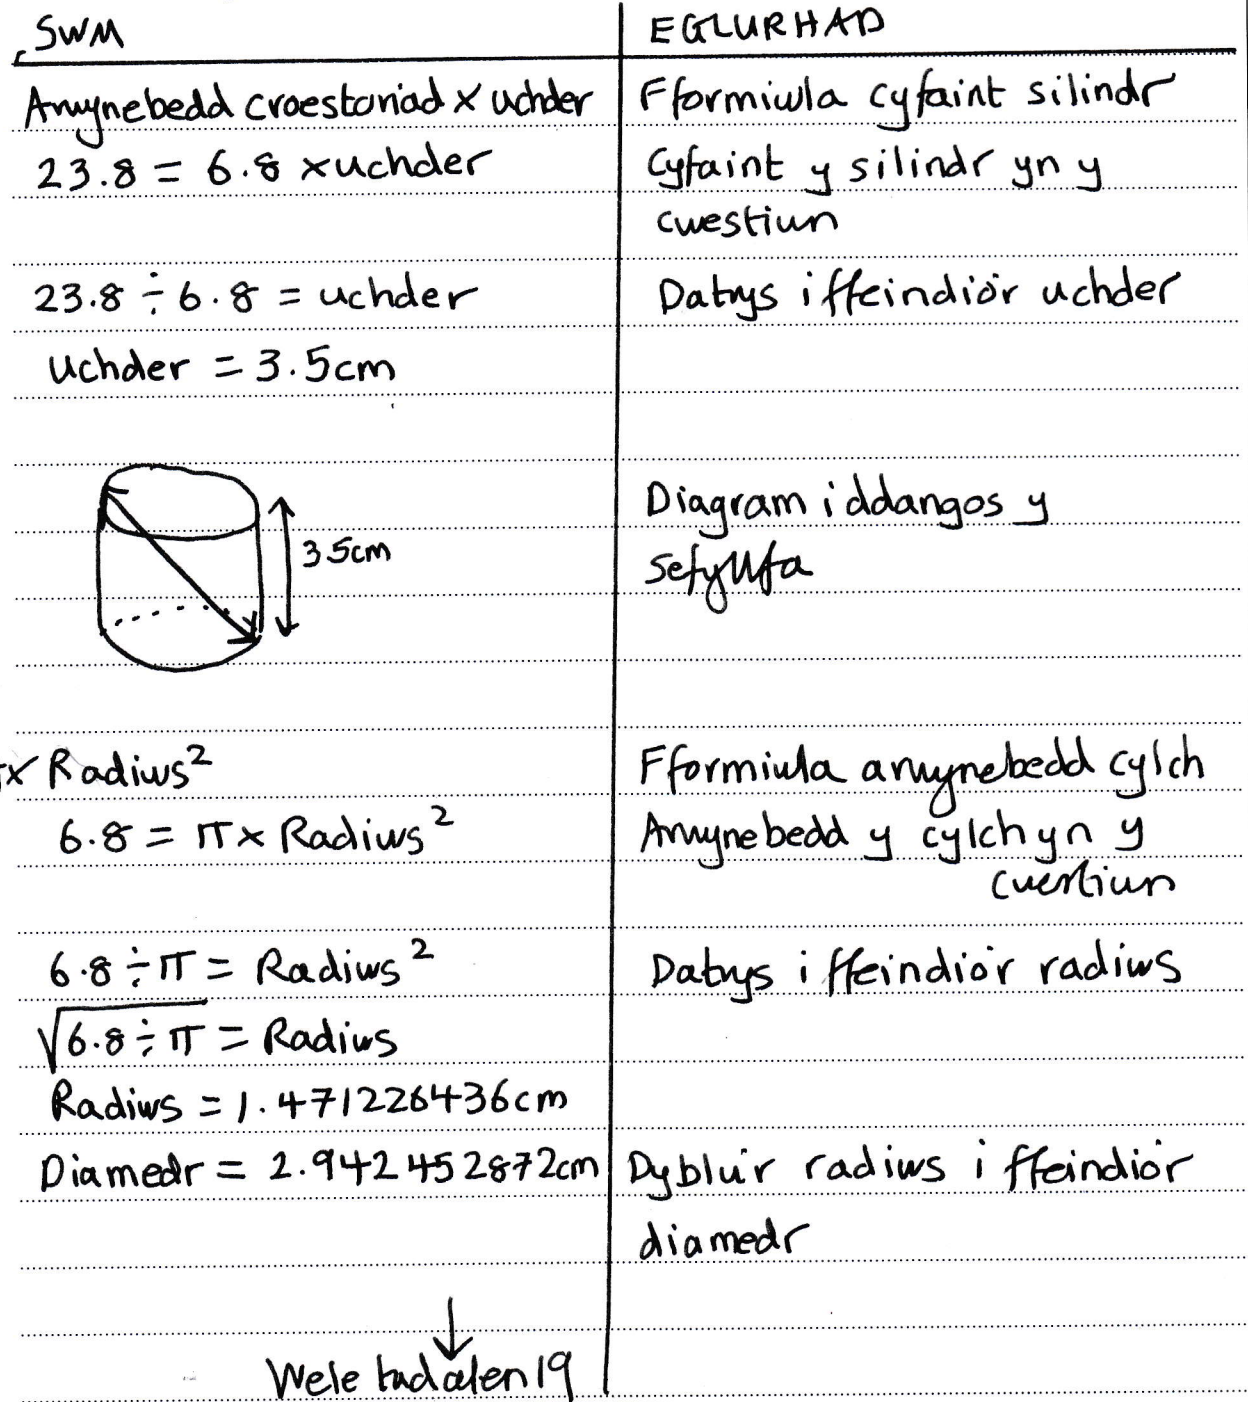 SWM
EGLURHAD
Arwynebedd croestoriad x uchder
Fformiwla cyfaint silindr
23.8 = 6.8 x uchder
Cyfaint y silindr yn y
cwestiwn
23.8 ÷ 6.8 = uchder
Datrys i ffeindio'r uchder
Uchder = 3.5cm
3.5cm
Diagram i ddangos y
sefyllfa
x Radiws²
Fformiwla arwynebedd cylch
6.8 = π x Radiws²
Arwynebedd y cylch yn y
cwestiwn
6.8 ÷ π = Radiws²
Datrys i ffeindio'r radiws
√6.8 ÷ π = Radiws
Radiws = 1.471226436cm
Diamedr = 2.942452872cm
Dyblu'r radiws i ffeindio'r
diamedr
Wele tudalen 19